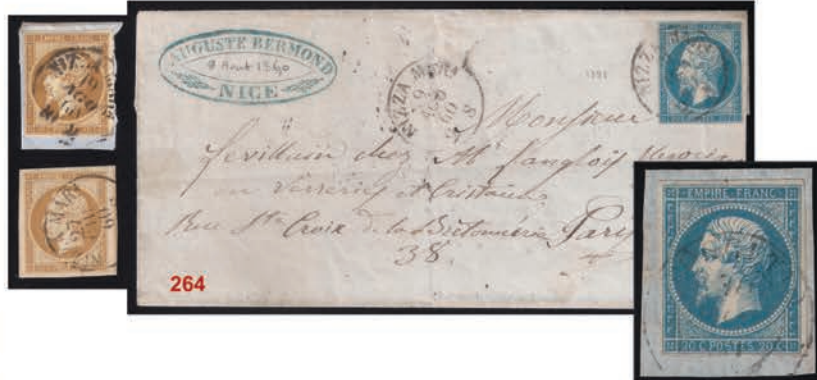 EMPIRE FRANC
NIZZA
19
AGO
60
AUGUSTE BERMOND
9 Aout 1860
NICE
NIZZA MARI
9
AGO
60
8 S
NIZZA
Monsieur
Levillain chez Mr Langlois
en Verreries et Cristaux
Rue Ste Croix de la Bretonnerie Paris
38.
264
EMPIRE FRANC
20 C POSTES 20 C